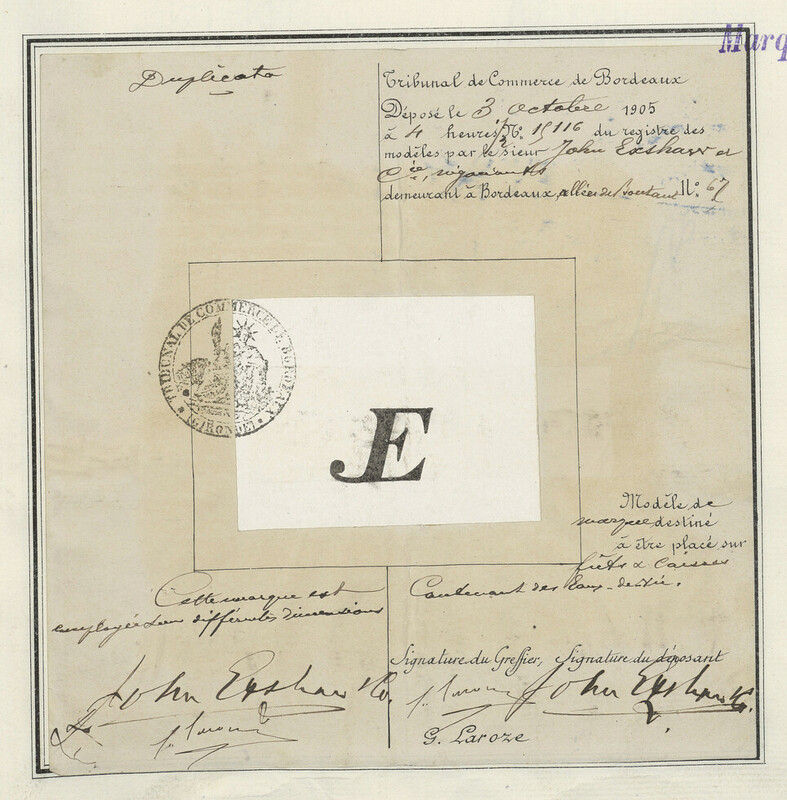 Marq
Duplicata
Tribunal de Commerce de Bordeaux
Déposé le 3 octobre 1905
à 4 heures ½ No. 15116 du registre des
modèles par le sieur John Exshaw et
Cie, négociants
demeurant à Bordeaux, allées de Boutaut No. 67
TRIBUNAL DE COMMERCE DE BORDEAUX
(GIRONDE)
JE
Modèle de
marque destiné
à être placé sur
fûts & caisses
Contenant des Eaux-de-Vie.
Cette marque est
employée en différentes dimensions
Signature du Greffier, Signature du déposant
John Exshaw & Co.
John Exshaw & Co.
G. Laroze